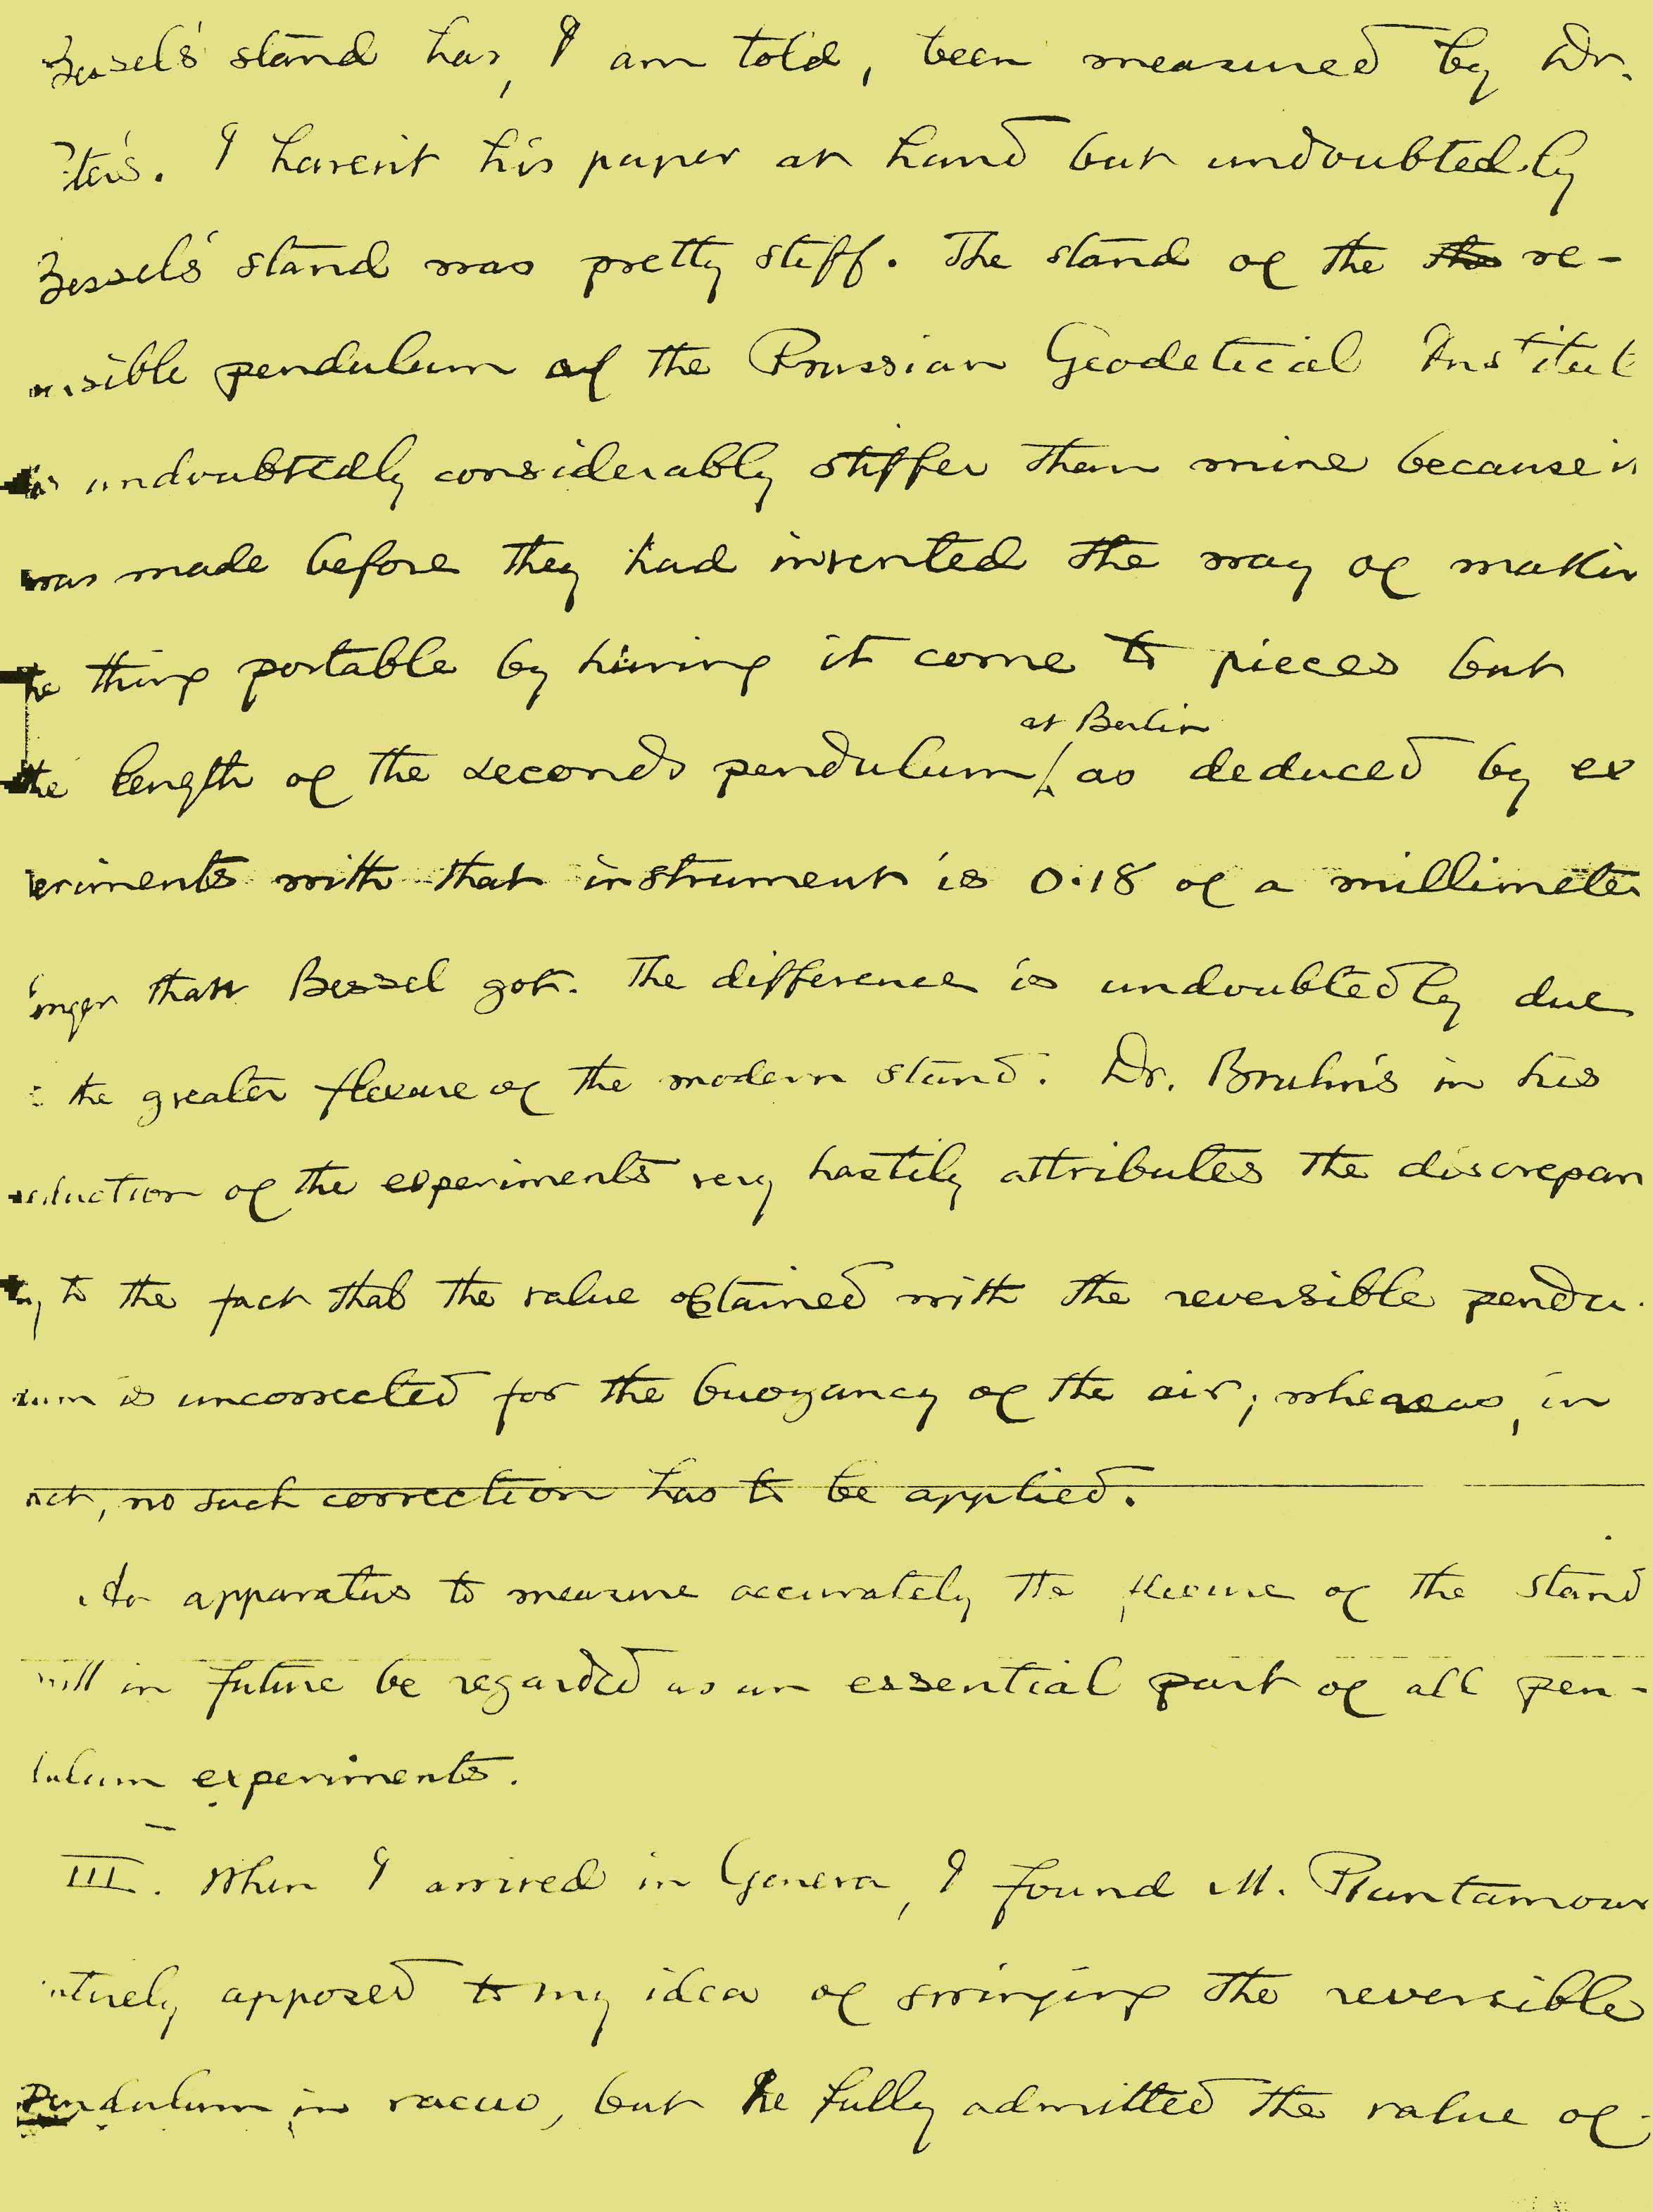 Bessel's stand has, I am told, been measured by Dr.
I haven't his paper at hand but undoubtedly
Bessel's stand was pretty stiff. The stand of the the re-
visible pendulum of the Prussian Geodetical Institut
is undoubtedly considerably stiffer than mine because it
was made before they had invented the way of makin
the thing portable by having it come to pieces but
at Berlin
the length of the seconds pendulum as deduced by ex
periments with that instrument is 0.18 of a millimeter
longer than Bessel got. The difference is undoubtedly due
the greater flexure of the modern stand. Dr. Bruhns in his
reduction of the experiments very hastily attributes the discrepan
cy to the fact that the value obtained with the reversible pendu-
lum is uncorrected for the buoyancy of the air; whereas, in
fact, no such correction has to be applied.
An apparatus to measure accurately the flexure of the stand
will in future be regarded as an essential part of all pen-
dulum experiments.
III. When I arrived in Geneva, I found M. Plantamour
entirely opposed to my idea of swinging the reversible
pendulum in vacuo, but he fully admitted the value of